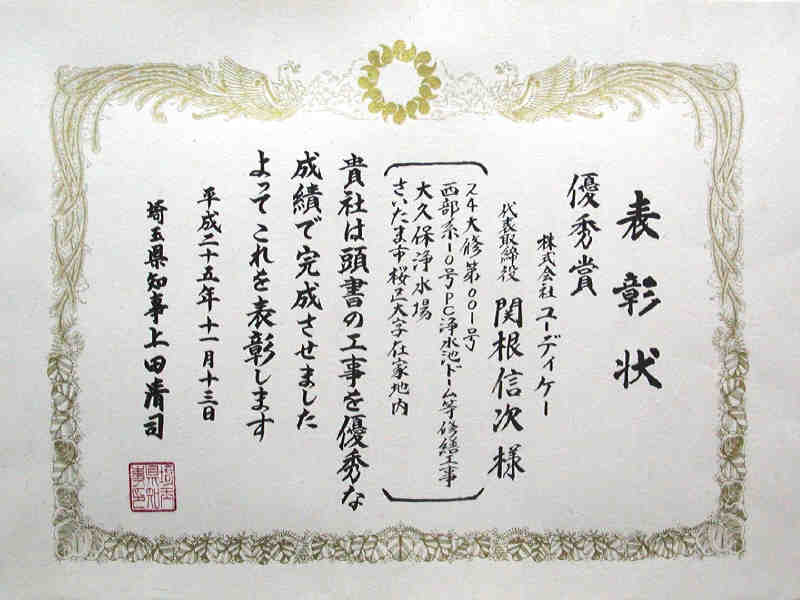 表彰状
優秀賞
株式会社 ユーディケー
代表取締役 関根信次 様
24大修第001号
西部系10号PC浄水池ドーム等修繕工事
大久保浄水場
さいたま市桜区大字在家地内
貴社は頭書の工事を優秀な
成績で完成させました
よってこれを表彰します
平成二十五年十一月十三日
埼玉県知事 上田清司